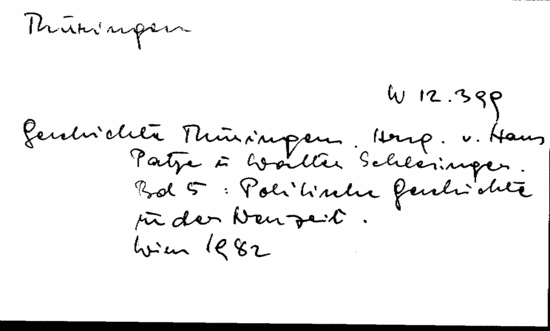 Thüringen
W 12.399
Geschichte Thüringens. Hrsg. v. Hans
Patze u Walter Schlesinger.
Bd 5 : Politische Geschichte
in der Neuzeit.
Wien 1982